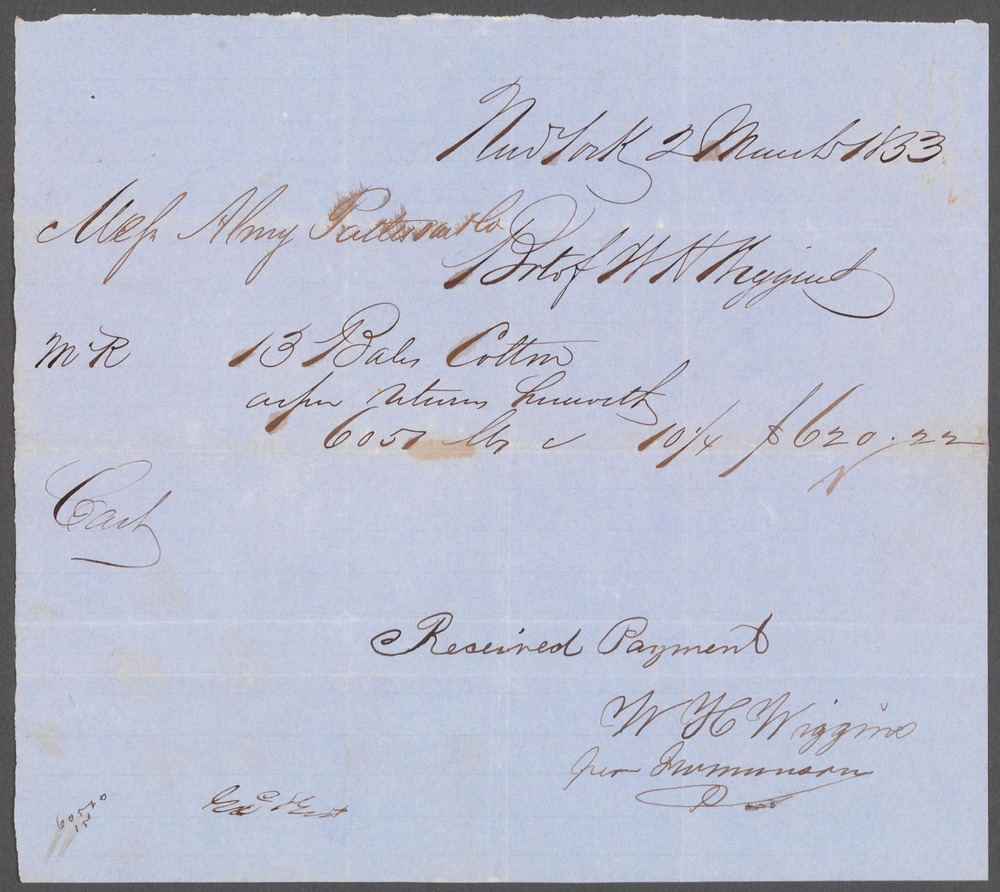 New York 2 March 1853
Mess Almy Patterson & Co
Bot of W H Wiggins
McR 13 Bales Cotton
as per returns herewith
6051 lbs c 10 1/4 $620.22
Cash
Received Payment
W H Wiggins
per